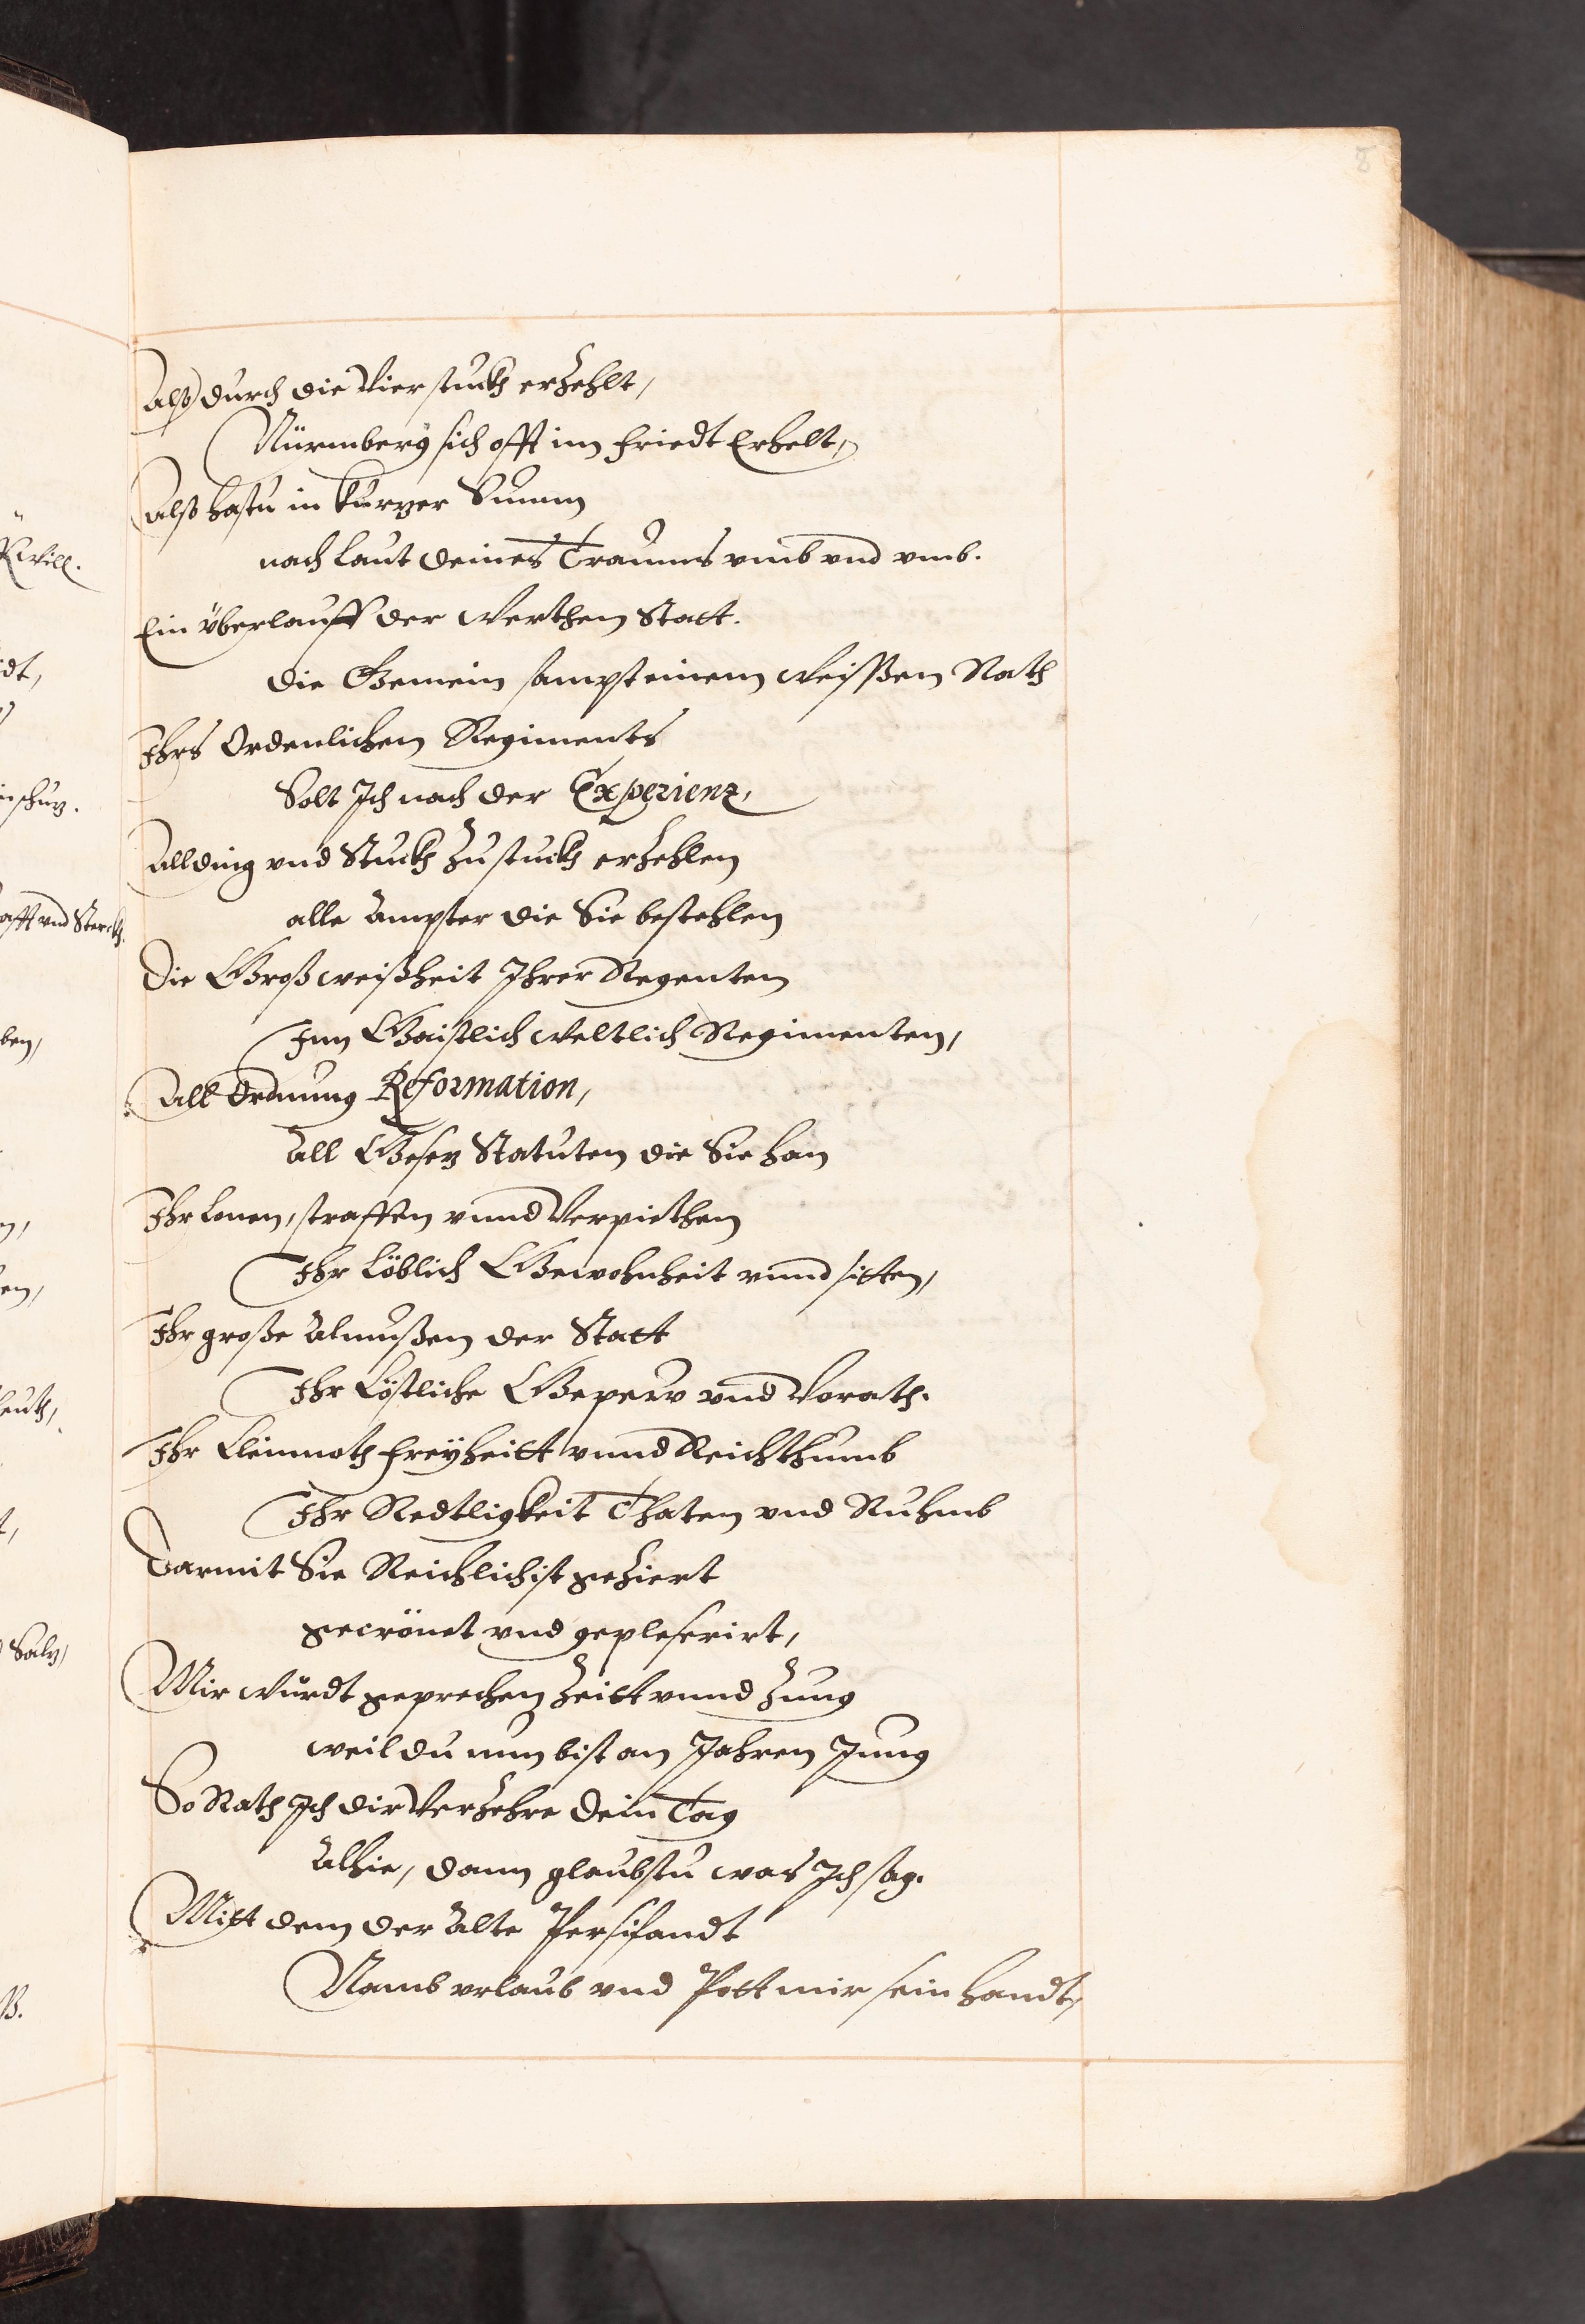 8
Also durch die Vier stuckh erzehlt,
Nürmberg sich offt im friedt Erhelt,
Also hastu in kurzer Summ
nach laut deines Traumes vmb vnd vmb.
Ein überlauff der werthen Statt.
die Gemein sampt einem weissen Rath
Ihrs Ordenlichen Regiments
Solt Ich nach der Experienz,
Allding vnd Stuckh zu stuckh erzehlen
alle ämpter die Sie bestehlen
Die Groß weißheit Ihrer Regenten
Inn Gaistlich weltlich Regimenten,
All Ordnung Reformation,
All Gesez Statuten die Sie han
Ihr lonen, straffen vnnd Verpiethen
Ihr löblich Gewohnheit vnnd sitten,
Ihr große Almußen der Statt
Ihr Cöstliche Gepew vnd Vorath.
Ihr Cleinnoth freÿheitt vnnd Reichthumb
Ihr Redtligkeit Thaten vnd Ruhmb
Darmit Sie Reichlich ist geziert
gecrönet vnd geplesirirt,
Mir wurdt geprechen Zeitt vnnd Zung
weil du nun bist an Jahren Jung
So Rath Ich dir Verzehre dein Tag
Alhie, dann glaubstu was Ich sag.
Mitt dem der Alte Persifandt
Namb vrlaub vnd Pott mir sein handt,
will.
dt,
schuz.
afft vnd Sterckh.
ben,
en,
Leuth,
t,
Salz,